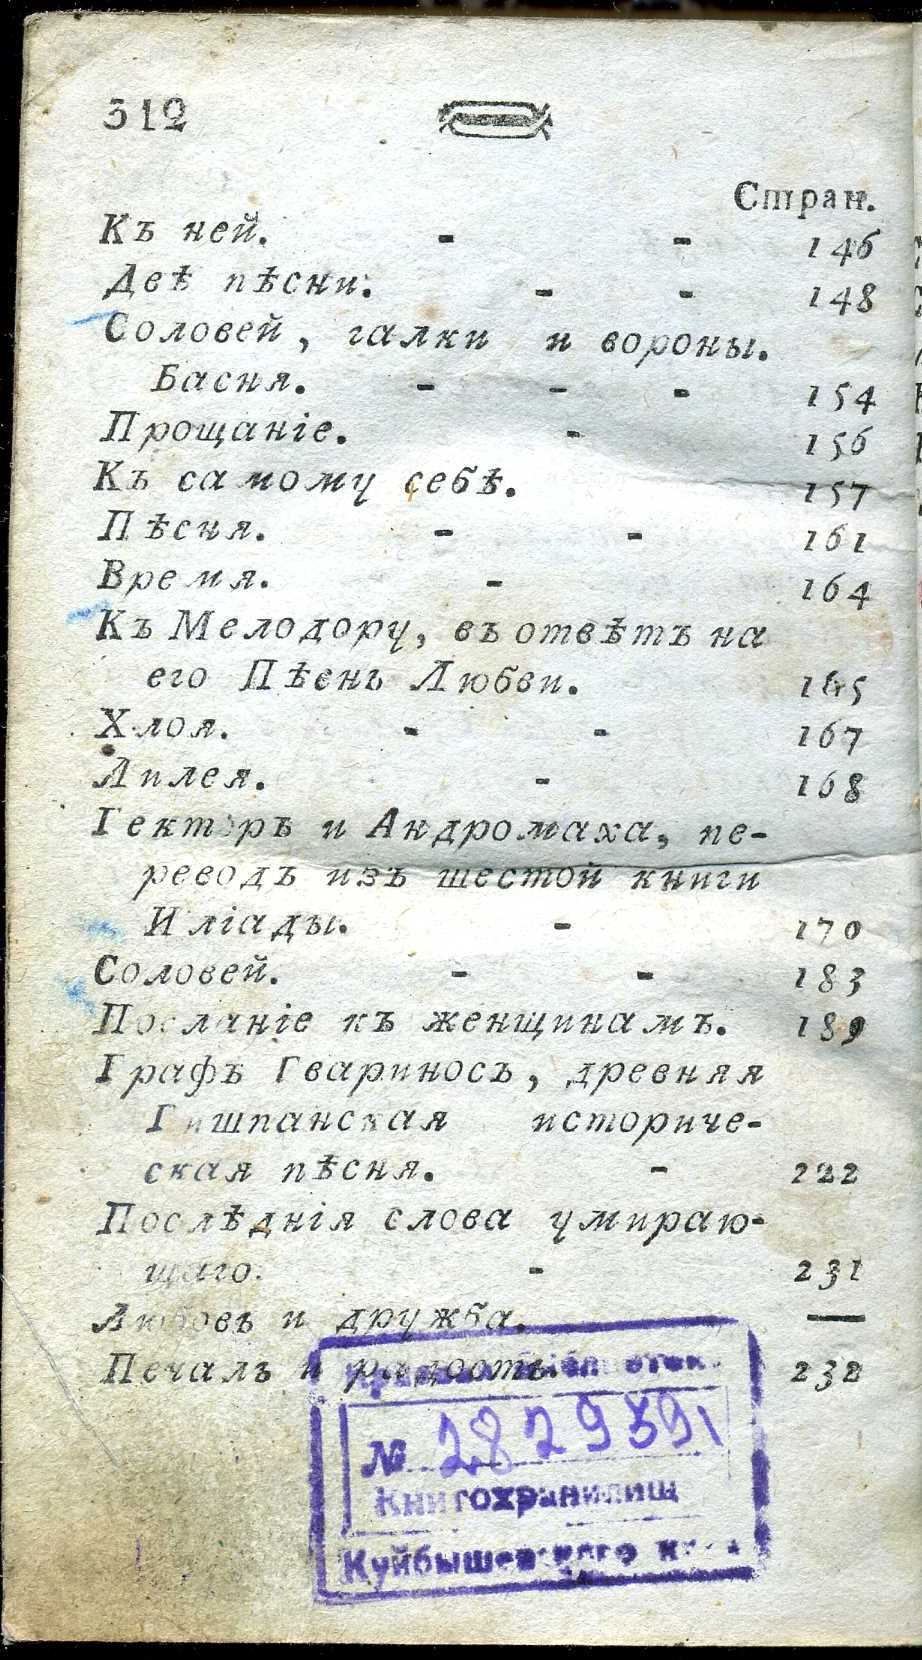 312
Стран.
Къ ней. - - 146
Двѣ пѣсни. - - 148
Соловей, галки и вороны.
Басня. - - - 154
Прощаніе. - 156
Къ самому себѣ. 157
Пѣсня. - - 161
Время. - 164
Къ Мелодору, въ отвѣтъ на
его Пѣснь Любви. 165
Хлоя. - - 167
Лилея. - 168
Гекторъ и Андромаха, пе-
реводъ изъ шестой книги
Иліады. - 170
Соловей. - - 183
Посланіе къ женщинамъ. 189
Графъ Гвариносъ, древняя
Гишпанская историче-
ская пѣсня. - 222
Послѣднія слова умираю-
щаго. - 231
Любовь и дружба. —
Печаль и радость. 232
№ 2829391
Книгохранилищ
Куйбышевского